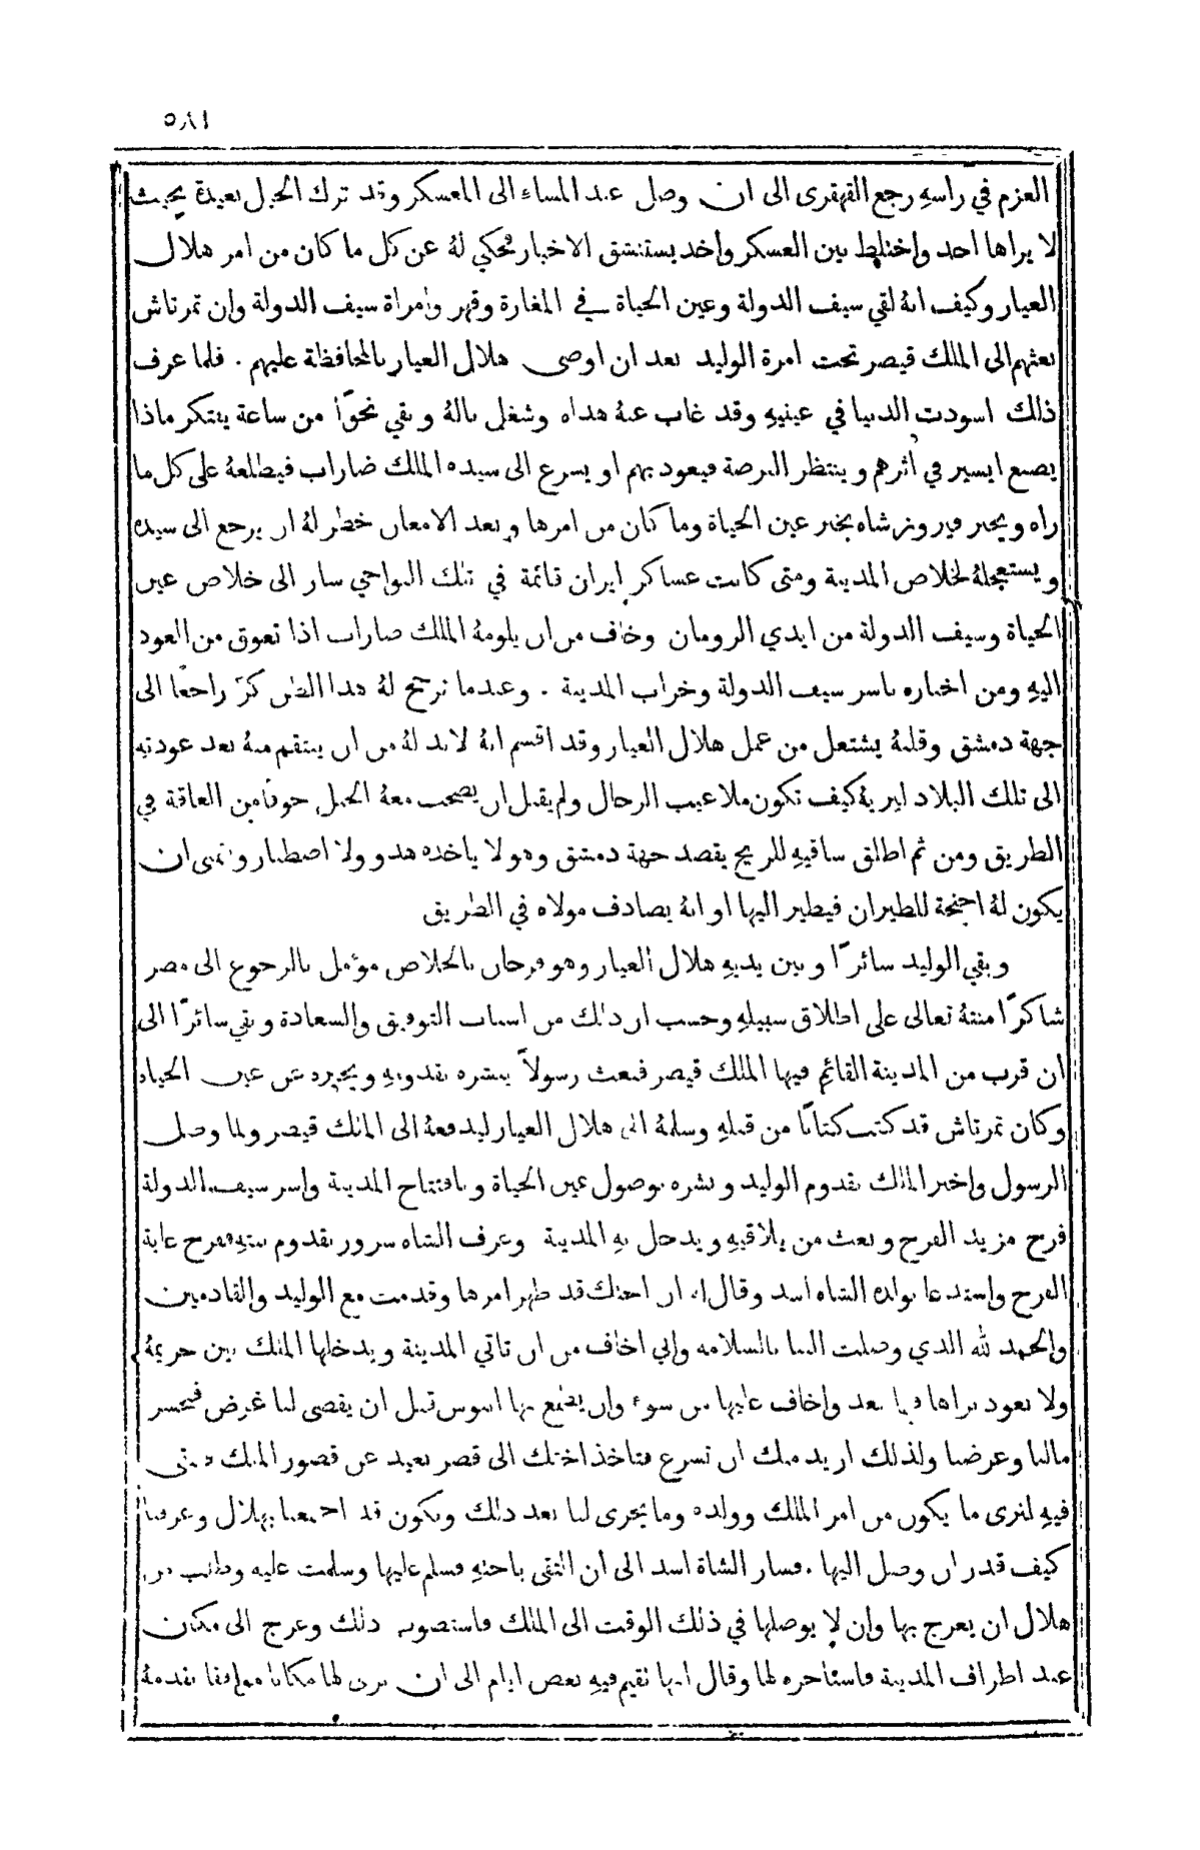 ١٨٥
العزم في راسهِ رجع القهقرى الى ان وصل عند المساء الى المعسكر وقد ترك الخيل بعيدة بحيث
لا يراها احد واختلط بين العسكر واخذ يستنشق الاخبار فحكي لهُ عن كل ما كان من امر هلال
العيار وكيف انهُ لقي سيف الدولة وعين الحياة في المغارة وقهر وامراة سيف الدولة وان تمرتاش
بعثهم الى الملك قيصر تحت امرة الوليد بعد ان اوصى هلال العيار بالمحافظة عليهم . فلما عرف
ذلك اسودت الدنيا في عينيهِ وقد غاب عنهُ هداه وشغل بالهُ وبقي نحوًا من ساعة يفتكر ماذا
يصنع ايسير في اثرهم وينتظر الفرصة فيعود بهم او يسرع الى سيده الملك ضاراب فيطلعهُ على كل ما
راه ويخبر فيروزشاه بخبر عين الحياة وما كان من امرها وبعد الامعان خطر لهُ ان يرجع الى سيده
ويستعجلهُ لخلاص المدينة ومتى كانت عساكر ايران قائمة في تلك النواحي سار الى خلاص عين
الحياة وسيف الدولة من ايدي الرومان وخاف من ان يلومهُ الملك ضاراب اذا تعوق من العود
اليهِ ومن اخباره باسر سيف الدولة وخراب المدينة . وعندما ترجح لهُ هذا الظن كرّ راجعًا الى
جهة دمشق وقلبهُ يشتعل من عمل هلال العيار وقد اقسم انهُ لابد لهُ من ان ينتقم منهُ بعد عودتهِ
الى تلك البلاد ليريهُ كيف تكون ملاعيب الرجال ولم يقبل ان يصحب معهُ الخيل خوفا من العاقة في
الطريق ومن ثم اطلق ساقيهِ للريح يقصد جهة دمشق وهو لا ياخذه هدو ولا اصطبار وتمنى ان
يكون لهُ اجنحة للطيران فيطير اليها او انهُ يصادف مولاه في الطريق
وبقي الوليد سائرًا وبين يديهِ هلال العيار وهو فرحان بالخلاص مؤمل بالرجوع الى مصر
شاكرًا منتهُ تعالى على اطلاق سبيلهِ وحسب ان ذلك من اسباب التوفيق والسعادة وبقي سائرًا الى
ان قرب من المدينة القائم فيها الملك قيصر فبعث رسولاً يبشره بقدومهِ ويخبره عن عين الحياه
وكان تمرتاش قد كتب كتابًا من قبلهِ وسلمهُ الى هلال العيار ليدفعهُ الى الملك قيصر ولما وصل
الرسول واخبر الملك بقدوم الوليد وبشره بوصول عين الحياة وبافتتاح المدينة واسر سيف الدولة
فرح مزيد الفرح وبعث من يلاقيهِ ويدخل بهِ المدينة وعرف الشاه سرور بقدوم بنتهِ ففرح غاية
الفرح واستدعا بولده الشاه اسد وقال لهُ ان اختك قد ظهر امرها وقدمت مع الوليد والقادمين
والحمد لله الذي وصلت الينا بالسلامه واني اخاف من ان تاتي المدينة ويدخلها الملك بين حريمهُ
ولا نعود نراها فيما بعد واخاف عليها من سوء وان يصنع بها افيوس قبل ان يقضى لنا غرض فنخسر
مالنا وعرضنا ولذلك اريد منك ان تسرع فتاخذ اختك الى قصر بعيد عن قصور الملك فتبقى
فيهِ لنرى ما يكون من امر الملك وولده وما يجرى لنا بعد ذلك ونكون قد اجتمعنا بهلال وعرفنا
كيف قدر ان وصل اليها . فسار الشاة اسد الى ان التقى باختهِ فسلم عليها وسلمت عليه وطلب من
هلال ان يعرج بها وان لا يوصلها في ذلك الوقت الى الملك فاستصوب ذلك وعرج الى مكان
عند اطراف المدينة فاستاجره لها وقال انها تقيم فيهِ بعض ايام الى ان نرى لها مكانا موافقا نقدمهُ